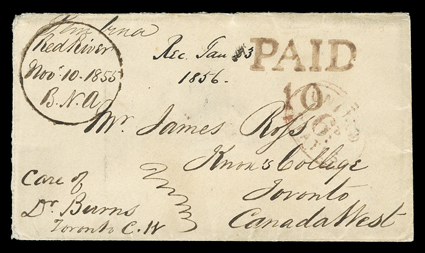 Pembina
Red River
Nov. 10. 1855
B.N.A
Rec. Jan 3
1856.
PAID
10
6
Mr. James Ross
Knox's College
Toronto
Canada West
Care of
Dr. Burns
Toronto C.W